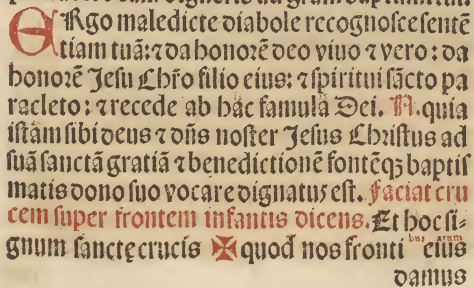 ERgo maledicte diabole recognosce sentẽ
tiam tuã: ⁊ da honorẽ deo viuo ⁊ vero: da
honorẽ Jesu Chr̃o filio eius: ⁊ spiritui sãcto pa
racleto: ⁊ recede ab hac famula Dei. N. quia
istãm sibi deus ⁊ dñs noster Jesus Christus ad
suã sanctã gratiã ⁊ benedictionẽ fontẽqꝫ baptis
matis dono suo vocare dignatus est. Faciat cru
cem super frontem infantis dicens. Et hoc si-
gnum sanctę crucis ✠ quod nos fronti eius
damus